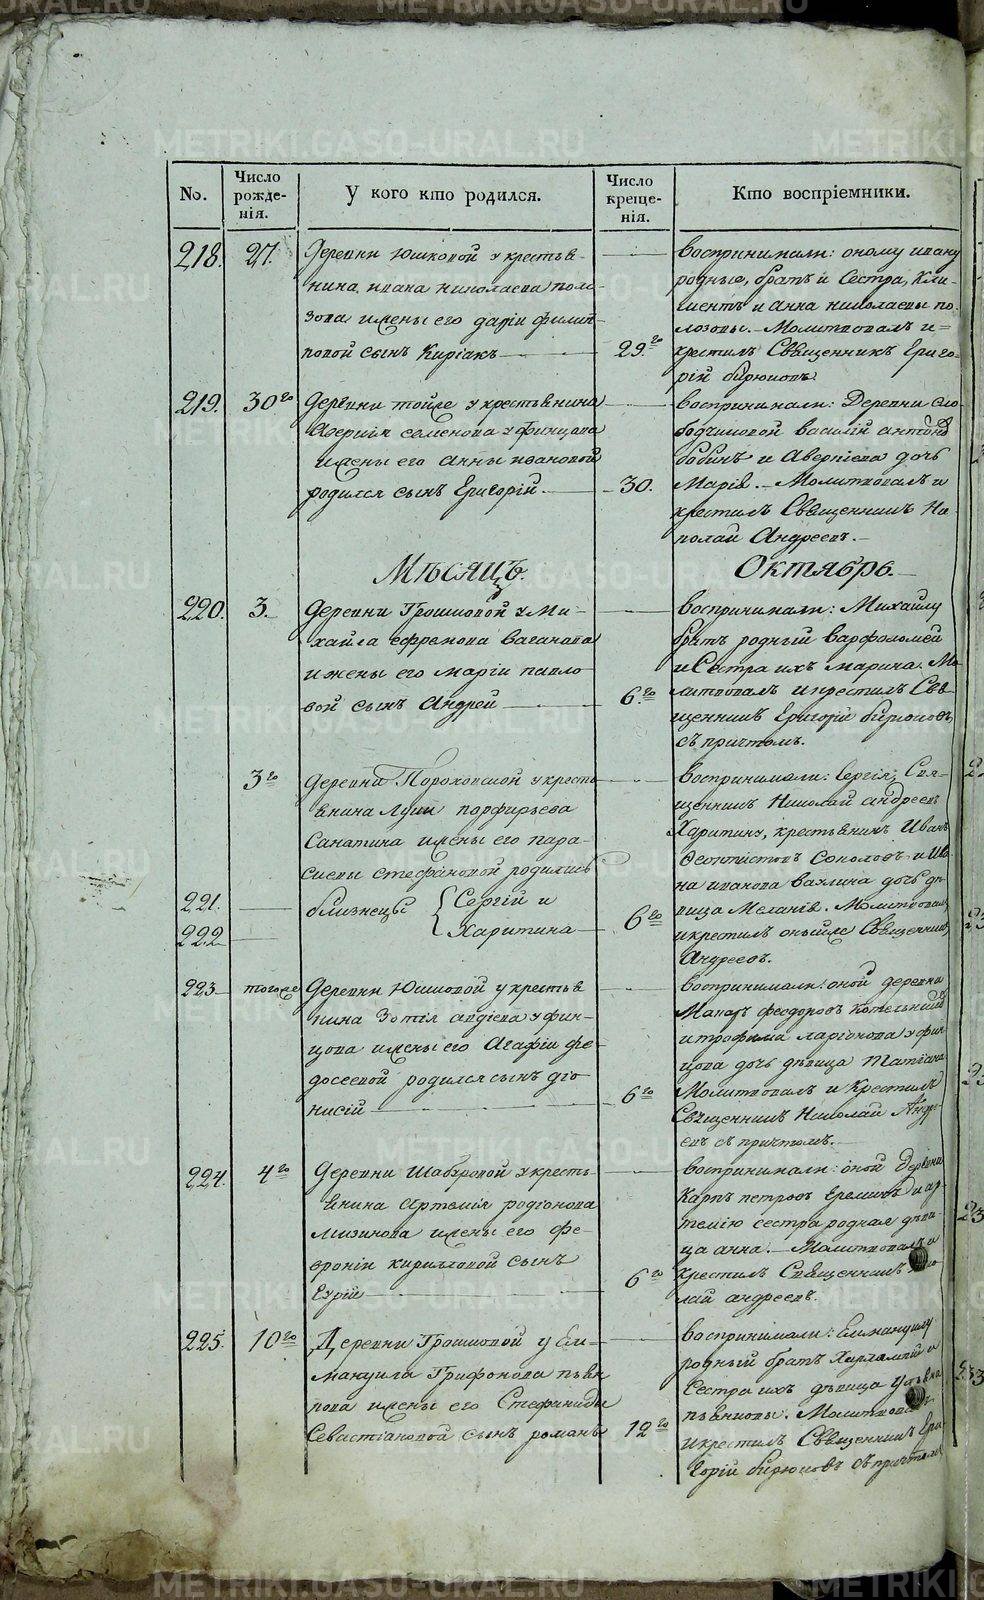 No.
Число рожде-нія.
У кого кто родился.
Число креще-нія.
Кто воспріемники.
218.
27.
Деревни Юшковой у крестья
нина ивана николаева пол-
зова и жены его даріи филип
повой сынъ Киріакъ
29.го
воспринимали: оному ивану
родные, братъ и Сестра, Кли-
ментъ и анна николаевы по
лозовы. Молитвовалъ и
крестилъ Священникъ Григо-
рій бирюковъ
219.
30го
Деревни тойже у крестьянина
Аверкія семенова
и жены его анны ивановой
родился сынъ Григорій.
30.
воспринимали: Деревни Сло
бодчиковой василій антоновъ
бабинъ и Аверкіева дочь
Марія. Молитвовалъ и
крестилъ Священникъ Ни
колай Андреевъ.
Мѣсяцъ.
Октябрь.
220.
3.
Деревни Грошковой у Ми-
хайла ефремова ваганова
и жены его маріи павло
вой сынъ Андрей
6.го
воспринимали: Михайлу
братъ родный варфоломей
и Сестра ихъ марина. Мо
литвовалъ и крестилъ Свя
щенникъ Григорій бирюковъ
съ причтомъ.
3го
деревни у кресть
янина Луки парфирьева
Санатина и жены его пара-
скевы стефановой родились
221.
222.
близнецы
Сергій и
Харитина
6го
воспринимали: Сергія, Свя-
щенникъ Николай андреевъ
Харитину, крестьянинъ Иванъ
Феоктистовъ Соколовъ и Ива
на иванова дочь дѣ
вица Меланія. Молитвовалъ
и крестилъ оныйже Священникъ
Андреевъ.
223.
тогоже
Деревни Юшковой у крестья
нина Зотія авдіева
и жены его Агафіи фе-
досеевой родился сынъ діо
нисій
6го
воспринимали: оной деревни
Макаръ феодоровъ Котельниковъ
и трофима ларіонова
дочь дѣвица татіана
Молитвовалъ и Крестилъ
Священникъ Николай Андре
евъ съ причтомъ.
224.
4го
Деревни Шабровой у кресть
янина Артемія родіонова
мизинова и жены его фе-
вроніи кириловой сынъ
Гурій
6го
воспринимали: оной деревни
Карпъ петровъ Ереминъ и ар
темію сестра родная дѣви-
ца анна. Молитвовалъ и
крестилъ Священникъ Нико
лай андреевъ.
225.
10го
Деревни Грошковой у Ем-
мануила Трифонова пьян
кова и жены его Стефаниды
Севастіановой сынъ романъ
12го
воспринимали: Еммануилу
родный братъ Харлампій и
Сестра ихъ дѣвица
пьянковы. Молитвовалъ
и крестилъ Священникъ Гри
горій бирюковъ съ причтомъ
METRIKI.GASO-URAL.RU